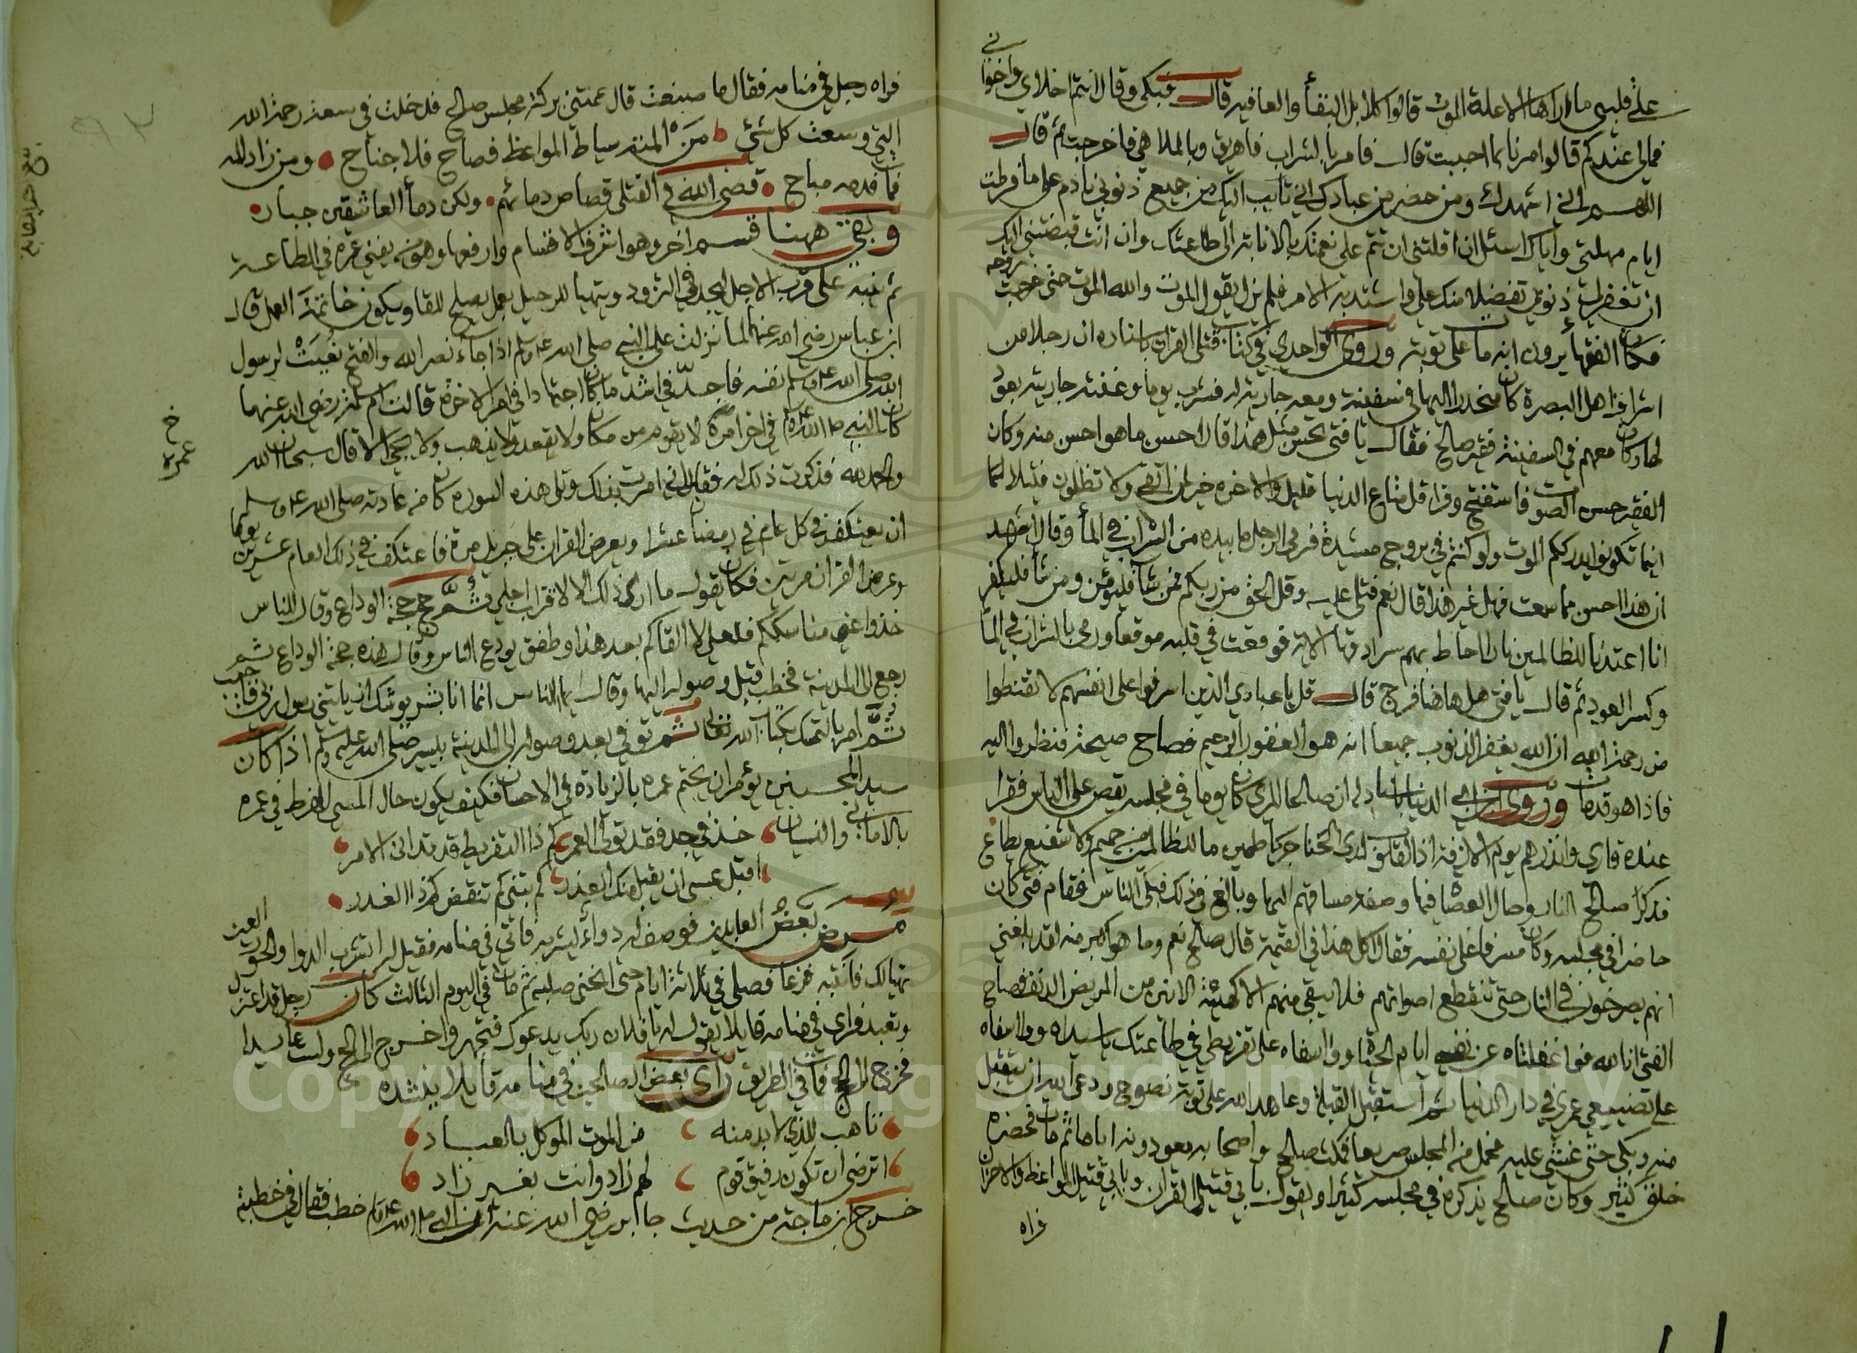 على قلبي ما اراها الا علة الموت قالوا كلا بل البقأ والعافية قال فبكى وقال انتم اخلاى واخوانى
فما لى عندكم قالوا مرنا بما احببت قال فامر بالشراب فاهريق وبالملاهى فاخرجت ثم قال
اللهم انى اشهدك ومن حضر من عبادك انى تايب اليك من جميع ذنوبى نادم على ما فرطت
ايام مهلتى واياك اسئل ان اقلتنى ان تتم على نعمتك بالانابة الى طاعتك وان انت قبضتنى اليك
ان تغفر لى ذنوبى تفضلا منك على واشتد به الامر فلم يزل يقول الموت والله الموت حتى خرجت روحه
فكان الفقهأ يرون انه مات على توبة وروى الواحدى فى كتاب قتلى القران باسناده ان رجلا من
اشراف اهل البصرة كان منحدرا اليها فى سفينة ومعه جارية له فشرب يوما وغنته جاريته بعود
لها وكان معهم فى السفينة فقير صالح فقال يا فتى تحسن مثل هذا قال احسن ما هو احسن منه وكان
الفقير حسن الصوت فاستفتح وقرا قل متاع الدنيا قليل والاخرة خير لمن اتقى ولا تظلمون فتيلا
اينما تكونوا يدرككم الموت ولو كنتم فى بروج مشيدة فرمى الرجل ما بيده من الشراب فى المأ وقال اشهد
ان هذا احسن مما سمعت فهل غير هذا قال نعم فتلى عليه وقل الحق من ربكم فمن شأ فليؤمن ومن شأ فليكفر
انا اعتدنا للظالمين نارا احاط بهم سرادقها الاية فوقعت فى قلبه موقعا ورمى بالشراب فى المأ
وكسر العود ثم قال يا فتى هل هاهنا فرج قال قل يا عبادى الذين اسرفوا على انفسهم لا تقنطوا
من رحمة الله ان الله يغفر الذنوب جميعا انه هو الغفور الرحيم فصاح صيحة فنظروا اليه
فاذا هو قد مات وروى ابن ابى الدنيا باسناد له ان صالحا المرى كان يوما فى مجلسه يقص على الناس فقرا
عنده قارى وانذرهم يوم الازفة اذ القلوب لدى الحناجر كاظمين ما للظالمين من حميم ولا شفيع يطاع
فذكر صالح النار وحال العصاة فيها وصفة مساقهم اليها وبالغ فى ذلك فبكى الناس فقام فتى كان
حاضرا فى مجلسه وكان مسرفا على نفسه فقال اكل هذا فى القيمة قال صالح نعم وما هو اكبر منه لقد بلغنى
انهم يصرخون فى النار حتى تنقطع اصواتهم فلا يبقى منهم الا كهيئة الانين من المريض الدنف فصاح
الفتى انا لله فوا غفلتاه عن نفسى ايام الحياة ووا اسفاه على تفريطى فى طاعتك يا سيداه ووا اسفاه
على تضييعى عمرى فى دار الدنيا ثم استقبل القبلة وعاهد الله على توبة نصوح ودعى الله ان يتقبل
منه وبكى حتى غشى عليه فحمل من المجلس صريعا فمكث صالح واصحابه يعودونه اياما ثم مات فحضره
خلق كثير وكان صالح يذكره فى مجلسه كثيرا ويقول بابى قتيل القران وبابى قتيل المواعظ والاحزان
فراه
فراه رجل فى منامه فقال ما صنعت قال عمتنى بركة مجلس صالح فدخلت فى سعة رحمة الله
التى وسعت كل شئ من المته سياط المواعظ فصاح فلا جناح ومن زاد الله
فمات فدمه مباح قضى الله فى القتلى قصاص دمائهم ولكن دمأ العاشقين جبار
وبقى ههنا قسم اخر وهو اشرف الاقسام وارفعها وهو من يفنى عمره فى الطاعة
ثم ينبه على قرب الاجل ليجد فى التزود ويتهيا للرحيل بعمل يصلح للقا ويكون خاتمة العمل قال
ابن عباس رضى الله عنهما لما نزلت على النبى صلى الله عليه وسلم اذا جأ نصر الله والفتح نعيت لرسول
الله صلى الله عليه وسلم نفسه فاخذ فى اشد ما كان اجتهادا فى امر الاخرة قالت ام سلمة رضى الله عنها
كان النبى صلى الله عليه وسلم فى اخر امره لا يقوم من مكان ولا يقعد ولا يذهب ولا يجئ الا قال سبحان الله
خ
عمره
وبحمده فذكرت ذلك له فقال انى امرت بذلك وتلى هذه السورة كان من عادته صلى الله عليه وسلم
ان يعتكف فى كل عام فى رمضان عشرا ويعرض القران على جبريل مرة فاعتكف فى ذلك العام عشرين يوما
وعرض القران مرتين فكان يقول ما ارى ذلك الا لاقتراب اجلى ثم حج حجة الوداع وقال للناس
خذوا عنى مناسككم فلعلى لا القاكم بعد هذا وطفق يودع الناس وقال هذه حجة الوداع ثم
رجع الى المدينة فخطب قبل وصوله اليها وقال ايها الناس انما انا بشر يوشك ان ياتينى رسول ربى فاجيب
ثم امر بالتمسك بكتاب الله تعالى ثم توفى بعد وصوله الى المدينة بيسير صلى الله عليه وسلم اذا كان
سيد المحسنين يؤمر ان يختم عمره بالزيادة فى الاحسان فكيف يكون حال المسى المفرط فى عمره
بالامانى والنسيان خذ فى جد فقد تولى العمر كم ذا التفريط قد تدانى الامر
اقبل عسى ان يقبل منك العذر كم تبنى كم تنقض كم ذا الغدر
مرض بعض العابدين فوصف له دوأ يشربه فاتى فى منامه فقيل له اتشرب الدوا والحور العين
تهيا لك فانتبه فزعا فصلى فى ثلاثة ايام حتى انحنى صلبه ثم مات فى اليوم الثالث كان رجل قد اعتزل
وتعبد فراى فى منامه قايلا يقول له يا فلان ربك يدعوك فتجهز واخرج الى الحج ولست عايدا
فخرج الى الحج فمات فى الطريق راى بعض الصالحين فى منامه قايلا ينشده
تاهب للذى لا بد منه من الموت الموكل بالعباد
اترضى ان تكون رفيق قوم لهم زاد وانت بغير زاد
خرج ابن ماجة من حديث جابر رضى الله عنه ان النبى صلى الله عليه وسلم خطب فقال فى خطبته